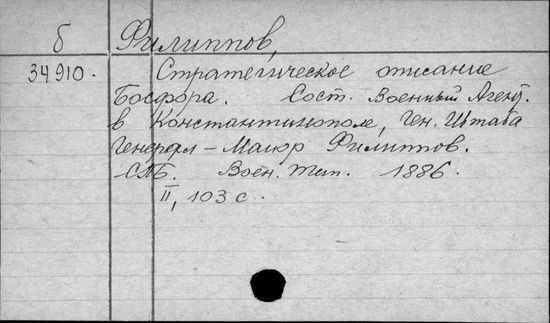 б Филиппов,
34910. Стратегическое описание
Босфора. Сост. Военный Агент
в Константинополе, Ген. Штаба
Генерал-Маиор Филиппов.
СПБ. Воен. тип. 1886.
II, 103 с.